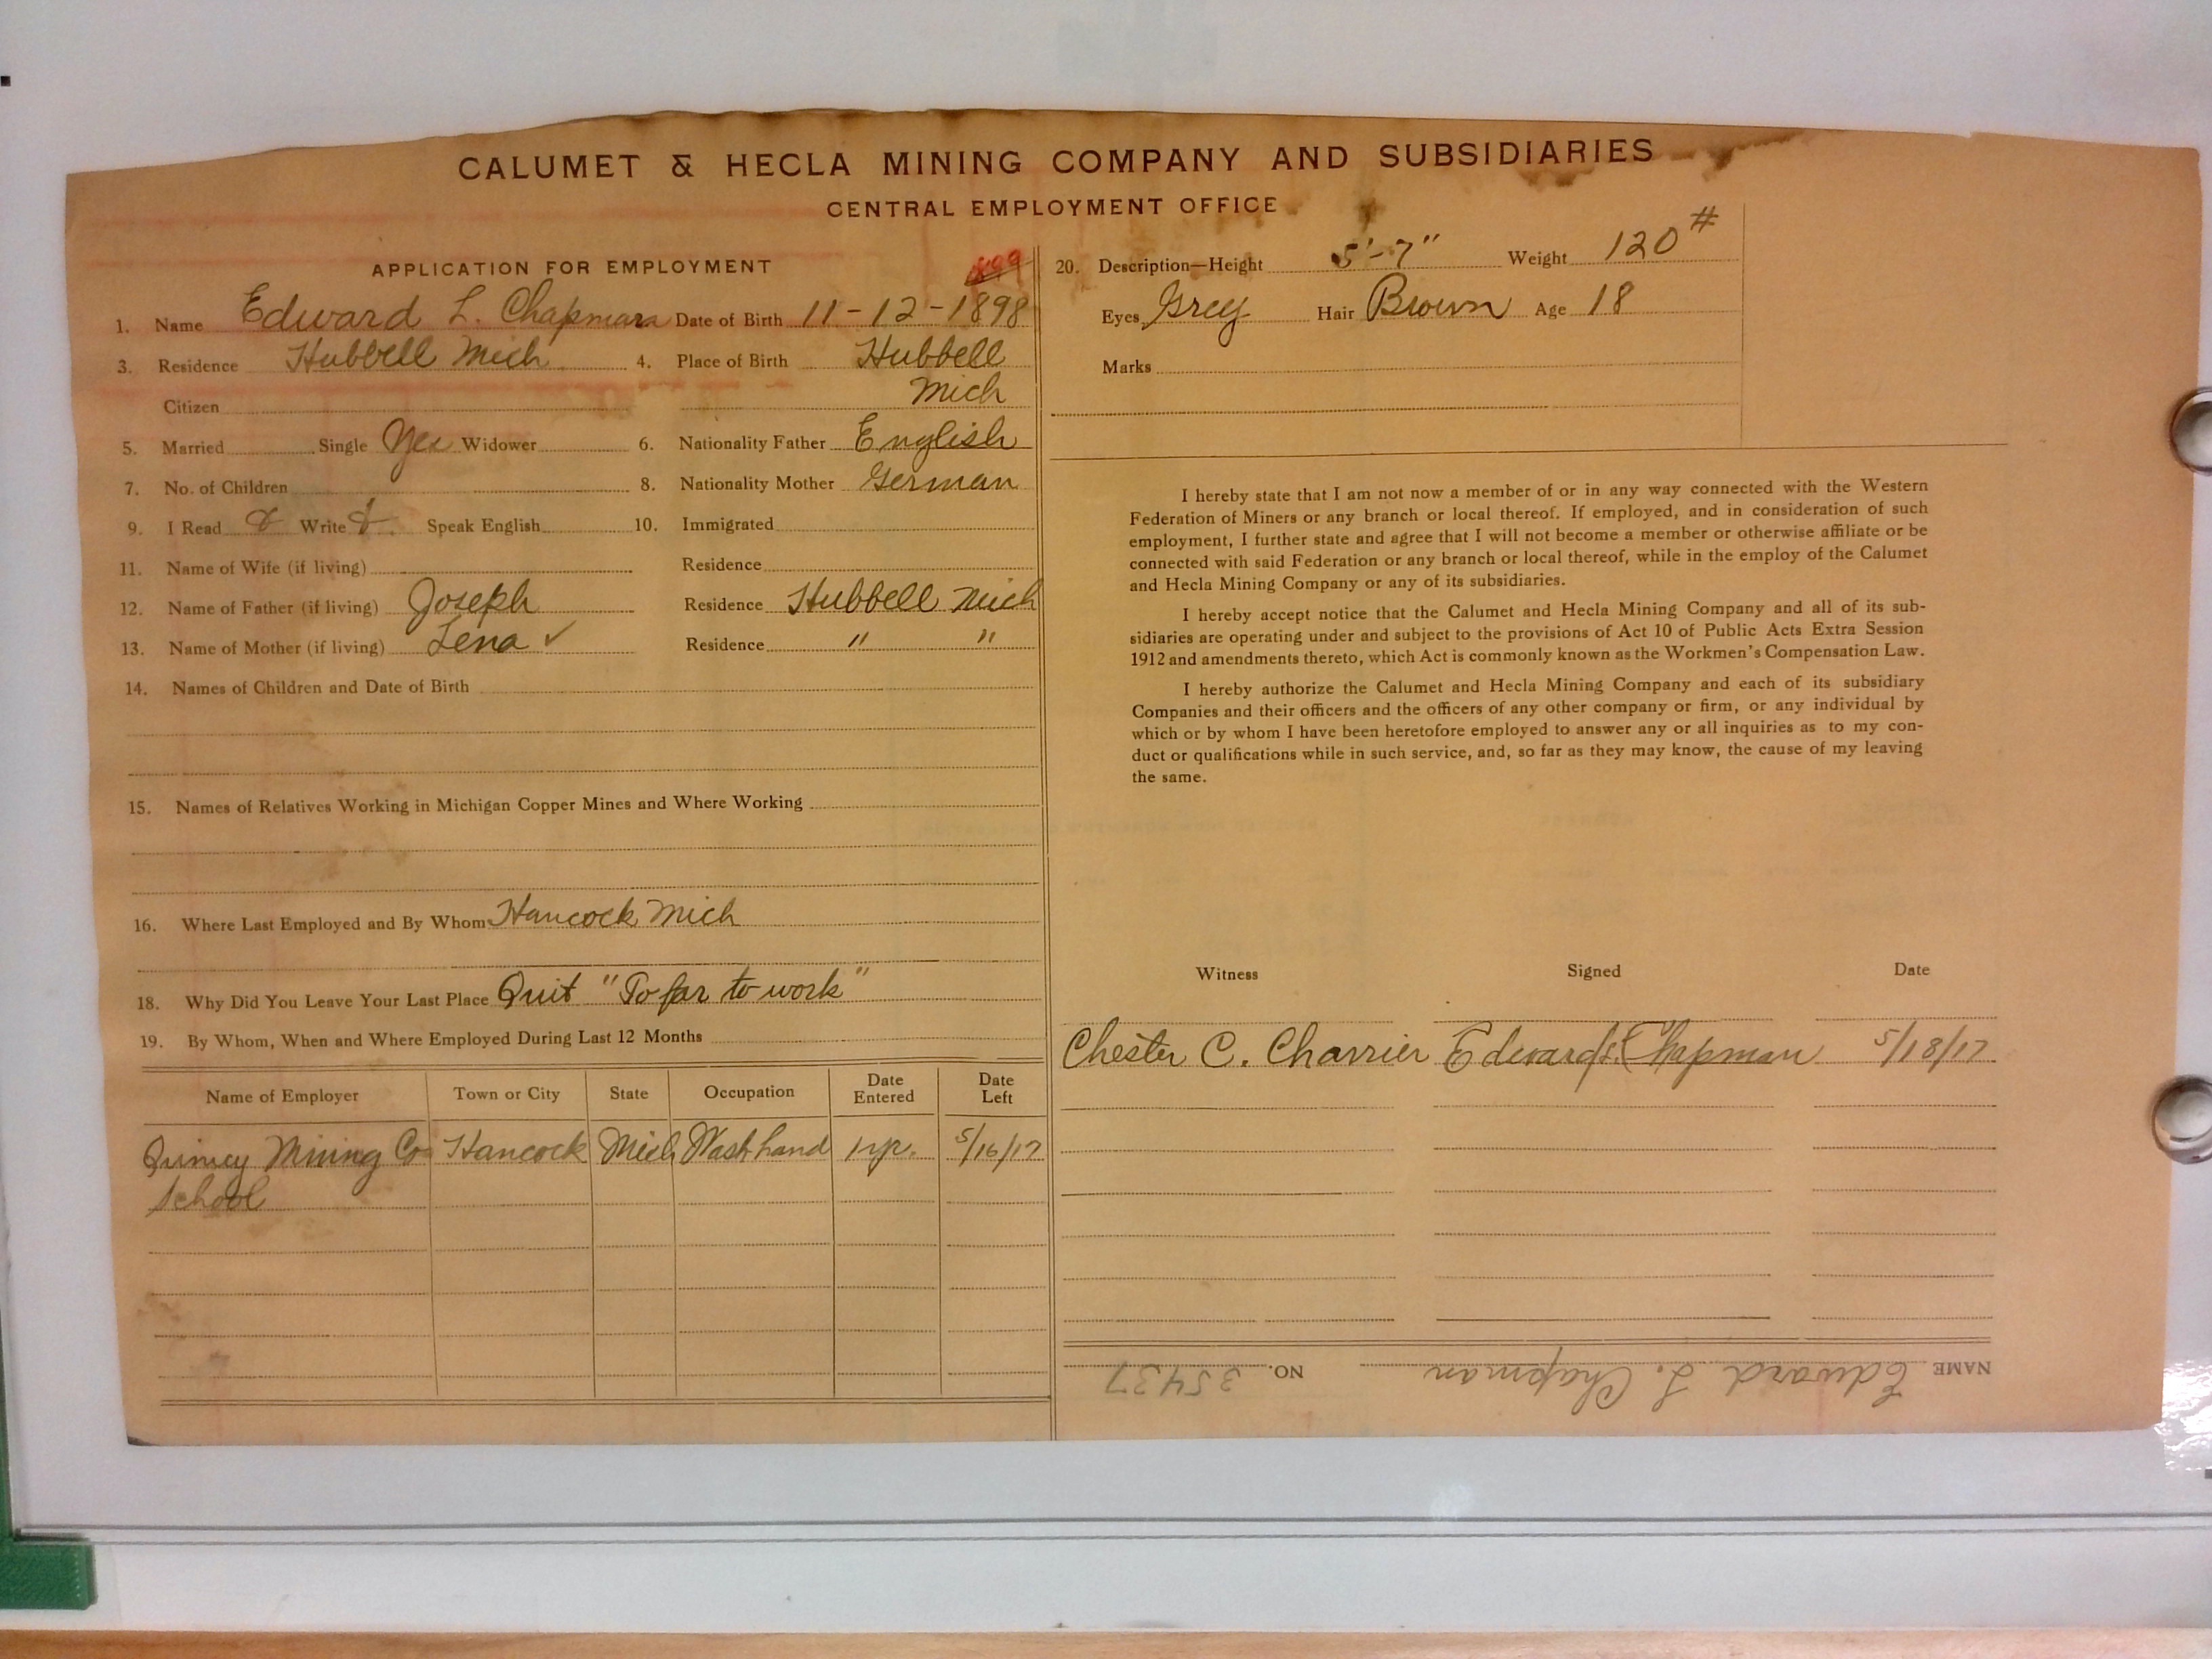 CALUMET & HECLA MINING COMPANY AND SUBSIDIARIES
CENTRAL EMPLOYMENT OFFICE
APPLICATION FOR EMPLOYMENT
1. Name Edward L. Chapman Date of Birth 11-12-1898
3. Residence Hubbell Mich 4. Place of Birth Hubbell
Citizen Mich
5. Married Single Yes Widower 6. Nationality Father English
7. No. of Children 8. Nationality Mother German
9. I Read Write Speak English 10. Immigrated
11. Name of Wife (if living) Residence
12. Name of Father (if living) Joseph Residence Hubbell Mich
13. Name of Mother (if living) Lena ✓ Residence " "
14. Names of Children and Date of Birth
15. Names of Relatives Working in Michigan Copper Mines and Where Working
16. Where Last Employed and By Whom Hancock Mich
18. Why Did You Leave Your Last Place Quit "To far to work"
19. By Whom, When and Where Employed During Last 12 Months
Name of Employer Town or City State Occupation Date Entered Date Left
Quincy Mining Co Hancock Mich Wash hand 1 yr. 5/16/17
School
20. Description—Height 5'-7" Weight 120#
Eyes Grey Hair Brown Age 18
Marks
I hereby state that I am not now a member of or in any way connected with the Western
Federation of Miners or any branch or local thereof. If employed, and in consideration of such
employment, I further state and agree that I will not become a member or otherwise affiliate or be
connected with said Federation or any branch or local thereof, while in the employ of the Calumet
and Hecla Mining Company or any of its subsidiaries.
I hereby accept notice that the Calumet and Hecla Mining Company and all of its sub-
sidiaries are operating under and subject to the provisions of Act 10 of Public Acts Extra Session
1912 and amendments thereto, which Act is commonly known as the Workmen's Compensation Law.
I hereby authorize the Calumet and Hecla Mining Company and each of its subsidiary
Companies and their officers and the officers of any other company or firm, or any individual by
which or by whom I have been heretofore employed to answer any or all inquiries as to my con-
duct or qualifications while in such service, and, so far as they may know, the cause of my leaving
the same.
Witness Signed Date
Chester C. Charrier Edward L. Chapman 5/18/17
NAME Edward L. Chapman NO. 35437